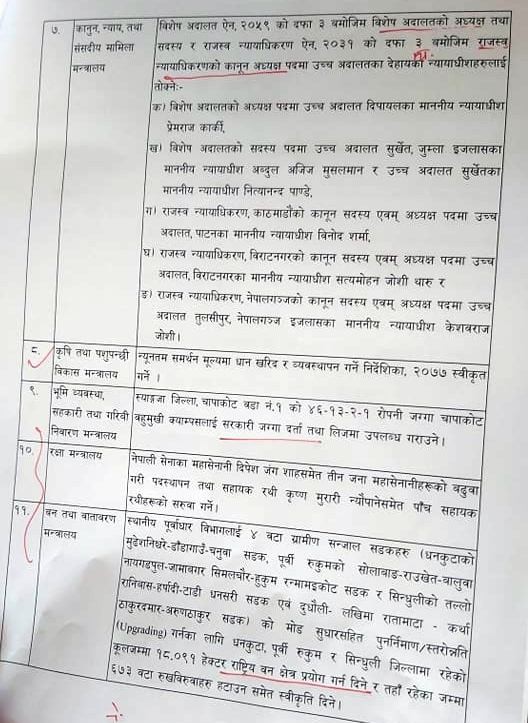 ७.
कानुन, न्याय, तथा
संसदीय मामिला
मन्त्रालय
विशेष अदालत ऐन, २०५९ को दफा ३ बमोजिम विशेष अदालतको अध्यक्ष तथा
सदस्य र राजस्व न्यायाधिकरण ऐन, २०३१ को दफा ३ बमोजिम राजस्व
न्यायाधिकरणको कानून अध्यक्ष पदमा उच्च अदालतका देहायका न्यायाधीशहरुलाई
तोक्ने:-
क) विशेष अदालतको अध्यक्ष पदमा उच्च अदालत दिपायलका माननीय न्यायाधीश
प्रेमराज कार्की,
ख) विशेष अदालतको सदस्य पदमा उच्च अदालत सुर्खेत, जुम्ला इजलासका
माननीय न्यायाधीश अब्दुल अजिज मुसलमान र उच्च अदालत सुर्खेतका
माननीय न्यायाधीश नित्यानन्द पाण्डे,
ग) राजस्व न्यायाधिकरण, काठमाडौंको कानून सदस्य एवम् अध्यक्ष पदमा उच्च
अदालत, पाटनका माननीय न्यायाधीश विनोद शर्मा,
घ) राजस्व न्यायाधिकरण, विराटनगरको कानून सदस्य एवम् अध्यक्ष पदमा उच्च
अदालत, विराटनगरका माननीय न्यायाधीश सत्यमोहन जोशी थारु र
ङ) राजस्व न्यायाधिकरण, नेपालगञ्जको कानून सदस्य एवम् अध्यक्ष पदमा उच्च
अदालत तुलसीपुर, नेपालगञ्ज इजलासका माननीय न्यायाधीश केशवराज
जोशी।
८.
कृषि तथा पशुपन्छी
विकास मन्त्रालय
न्यूनतम समर्थन मूल्यमा धान खरिद र व्यवस्थापन गर्ने निर्देशिका, २०७७ स्वीकृत
गर्ने ।
९.
भूमि व्यवस्था,
सहकारी तथा गरिबी
निवारण मन्त्रालय
स्याङ्जा जिल्ला, चापाकोट वडा नं.१ को ४६-१३-२-१ रोपनी जग्गा चापाकोट
बहुमुखी क्याम्पसलाई सरकारी जग्गा दर्ता तथा लिजमा उपलब्ध गराउने।
१०.
रक्षा मन्त्रालय
नेपाली सेनाका महासेनानी दिपेश जंग शाहसमेत तीन जना महासेनानीहरूको बढुवा
गरी पदस्थापन तथा सहायक रथी कृष्ण मुरारी न्यौपानेसमेत पाँच सहायक
रथीहरूको सरुवा गर्ने।
११.
वन तथा वातावरण
मन्त्रालय
स्थानीय पूर्वाधार विभागलाई ४ वटा ग्रामीण सन्जाल सडकहरु (धनकुटाको
मुढेशनिश्चरे-डाँडागाउँ-चनुवा सडक, पूर्वी रुकुमको सोलाबाङ-राउखेत-बालुवा
नायगडपुल-जामाबगर सिमलचौर-हुकुम रन्मामइकोट सडक र सिन्धुलीको तल्लो
रानिवास-हर्पादी-टाडी धनसरी सडक एवं दुधौली- लखिमा रातामाटा - कर्था
ठाकुरदमार-अरुणठाकुर सडक) को मोड सुधारसहित पुनर्निर्माण/स्तरोन्नति
(Upgrading) गर्नका लागि धनकुटा, पूर्वी रुकुम र सिन्धुली जिल्लामा रहेको
कूलजम्मा १८.०९१ हेक्टर राष्ट्रिय वन क्षेत्र प्रयोग गर्न दिने र तहाँ रहेका जम्मा
६७३ वटा रुखबिरुवाहरु हटाउन समेत स्वीकृति दिने।